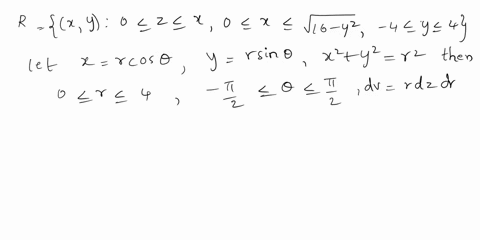 R = {(x, y) : 0 ≤ z ≤ x, 0 ≤ x ≤ √(16-y²), -4 ≤ y ≤ 4}
let x = r cos θ, y = r sin θ, x² + y² = r² then
0 ≤ r ≤ 4, -π/2 ≤ θ ≤ π/2, dv = r dz dr